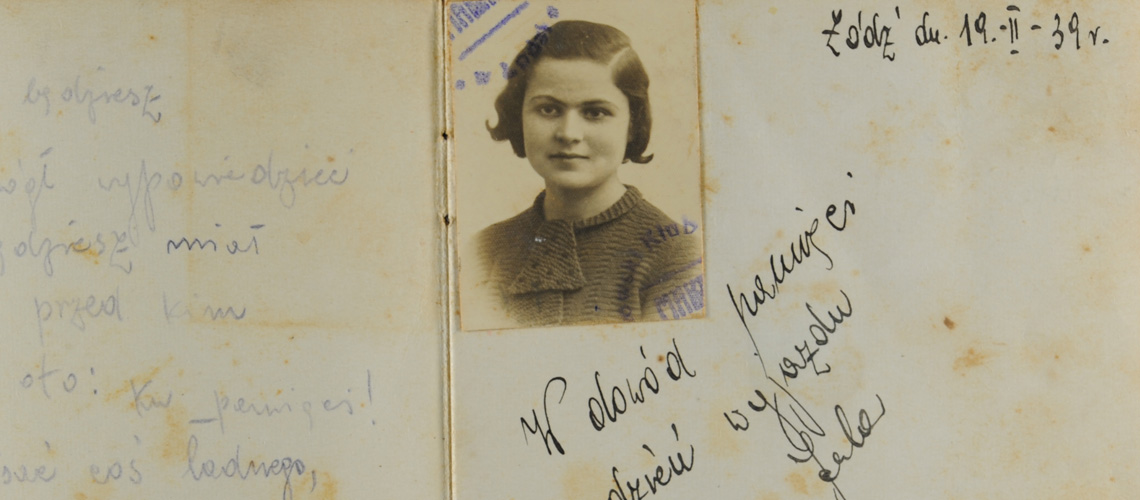 będziesz
mógł wypowiedzieć
będziesz miał
przed kim
oto:
Ku pamięci!
coś ładnego,
Łódź dn. 19.-II-39 r.
W dowód pamięci
dzień wyjazdu
Klub